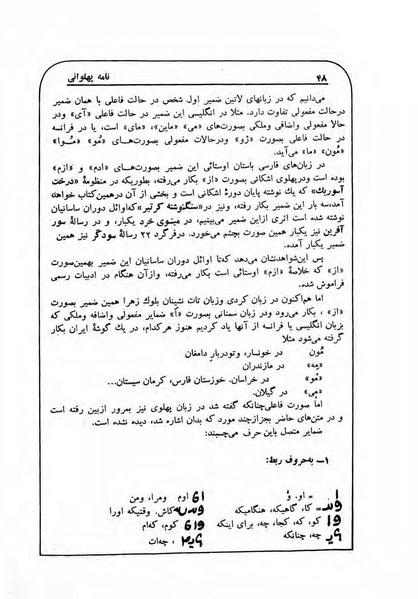 ۴۸ نامه پهلوانی
می‌دانیم که در زبانهای لاتین ضمیر اول شخص در حالت فاعلی با همان ضمیر
درحالت مفعولی تفاوت دارد. مثلا در انگلیسی این ضمیر در حالت فاعلی «آی» ودر
حالا مفعولی واضافی وملکی بصورت‌های «می» «ماین»، «مای» است، یا در فرانسه
در حالت فاعلی بصورت «ژو» ودرحالات مفعولی بصورت‌های «مُو» «مُوا»
«مُون» «ما» می‌آید.
در زبان‌های فارسی باستان اوستائی این ضمیر بصورت‌های «ادم» و «ازم»
بوده است ودرپهلوی اشکانی بصورت «از» بکار می‌رفته، بطوریکه در منظومهٔ «درخت
آسوریک» که یك نوشته پایان دورهٔ اشکانی است و بخشی از آن درهمین‌کتاب خواهد
آمدسه بار این ضمیر بکار رفته، ونیز در «سنگنوشته کرتیر» که‌اوائل دوران ساسانیان
نوشته شده است اثری ازاین ضمیر می‌بینیم، در مینوی خرد یکبار، و در رسالهٔ سور
آفرین نیز یکبار همین صورت بچشم می‌خورد. درفرگرد ۲۲ رسالهٔ سودگر نیز همین
ضمیر یکبار آمده.
پس این‌شواهدنشان می‌دهد که‌تا اوائل دوران ساسانیان این ضمیر بهمین‌صورت
«از» که خلاصهٔ «ازم» اوستائی است بکار می‌رفته، وازآن هنگام در ادبیات رسمی
فراموش شده.
اما هم‌اکنون در زبان کردی وزبان تات نشینان بلوك زهرا همین ضمیر بصورت
«از» ، بکار می‌رود ودر زبان سمنانی بصورت «اَ» ضمایر مفعولی واضافه وملکی که
بزبان انگلیسی یا فرانسه از آنها یاد کردیم هنوز هرکدام، در یك گوشهٔ ایران بکار
گرفته می‌شود مثلا
مُون در خونسار، وتودربار دامغان
«مِه» در مازندران
«مُو» در خراسان. خوزستان فارس، کرمان سیستان...
«مِی» در گیلان.
اما صورت فاعلی‌چنانکه گفته شد در زبان پهلوی نیز بمرور ازبین رفته است
و در متن‌های حاضر بجزازچند مورد که بدان اشاره شد، دیده نشده است.
ضمایر متصل باین حرف می‌چسبند:
۱ــ به‌حروف ربط:
= او. وُ اوم ومرا، ومن
= کا، گاهیکه، هنگامیکه کاش. وقتیکه اورا
کو، که، کجا، چه، برای اینکه کوم، که‌ام
چه، چنانکه ، چه‌ات